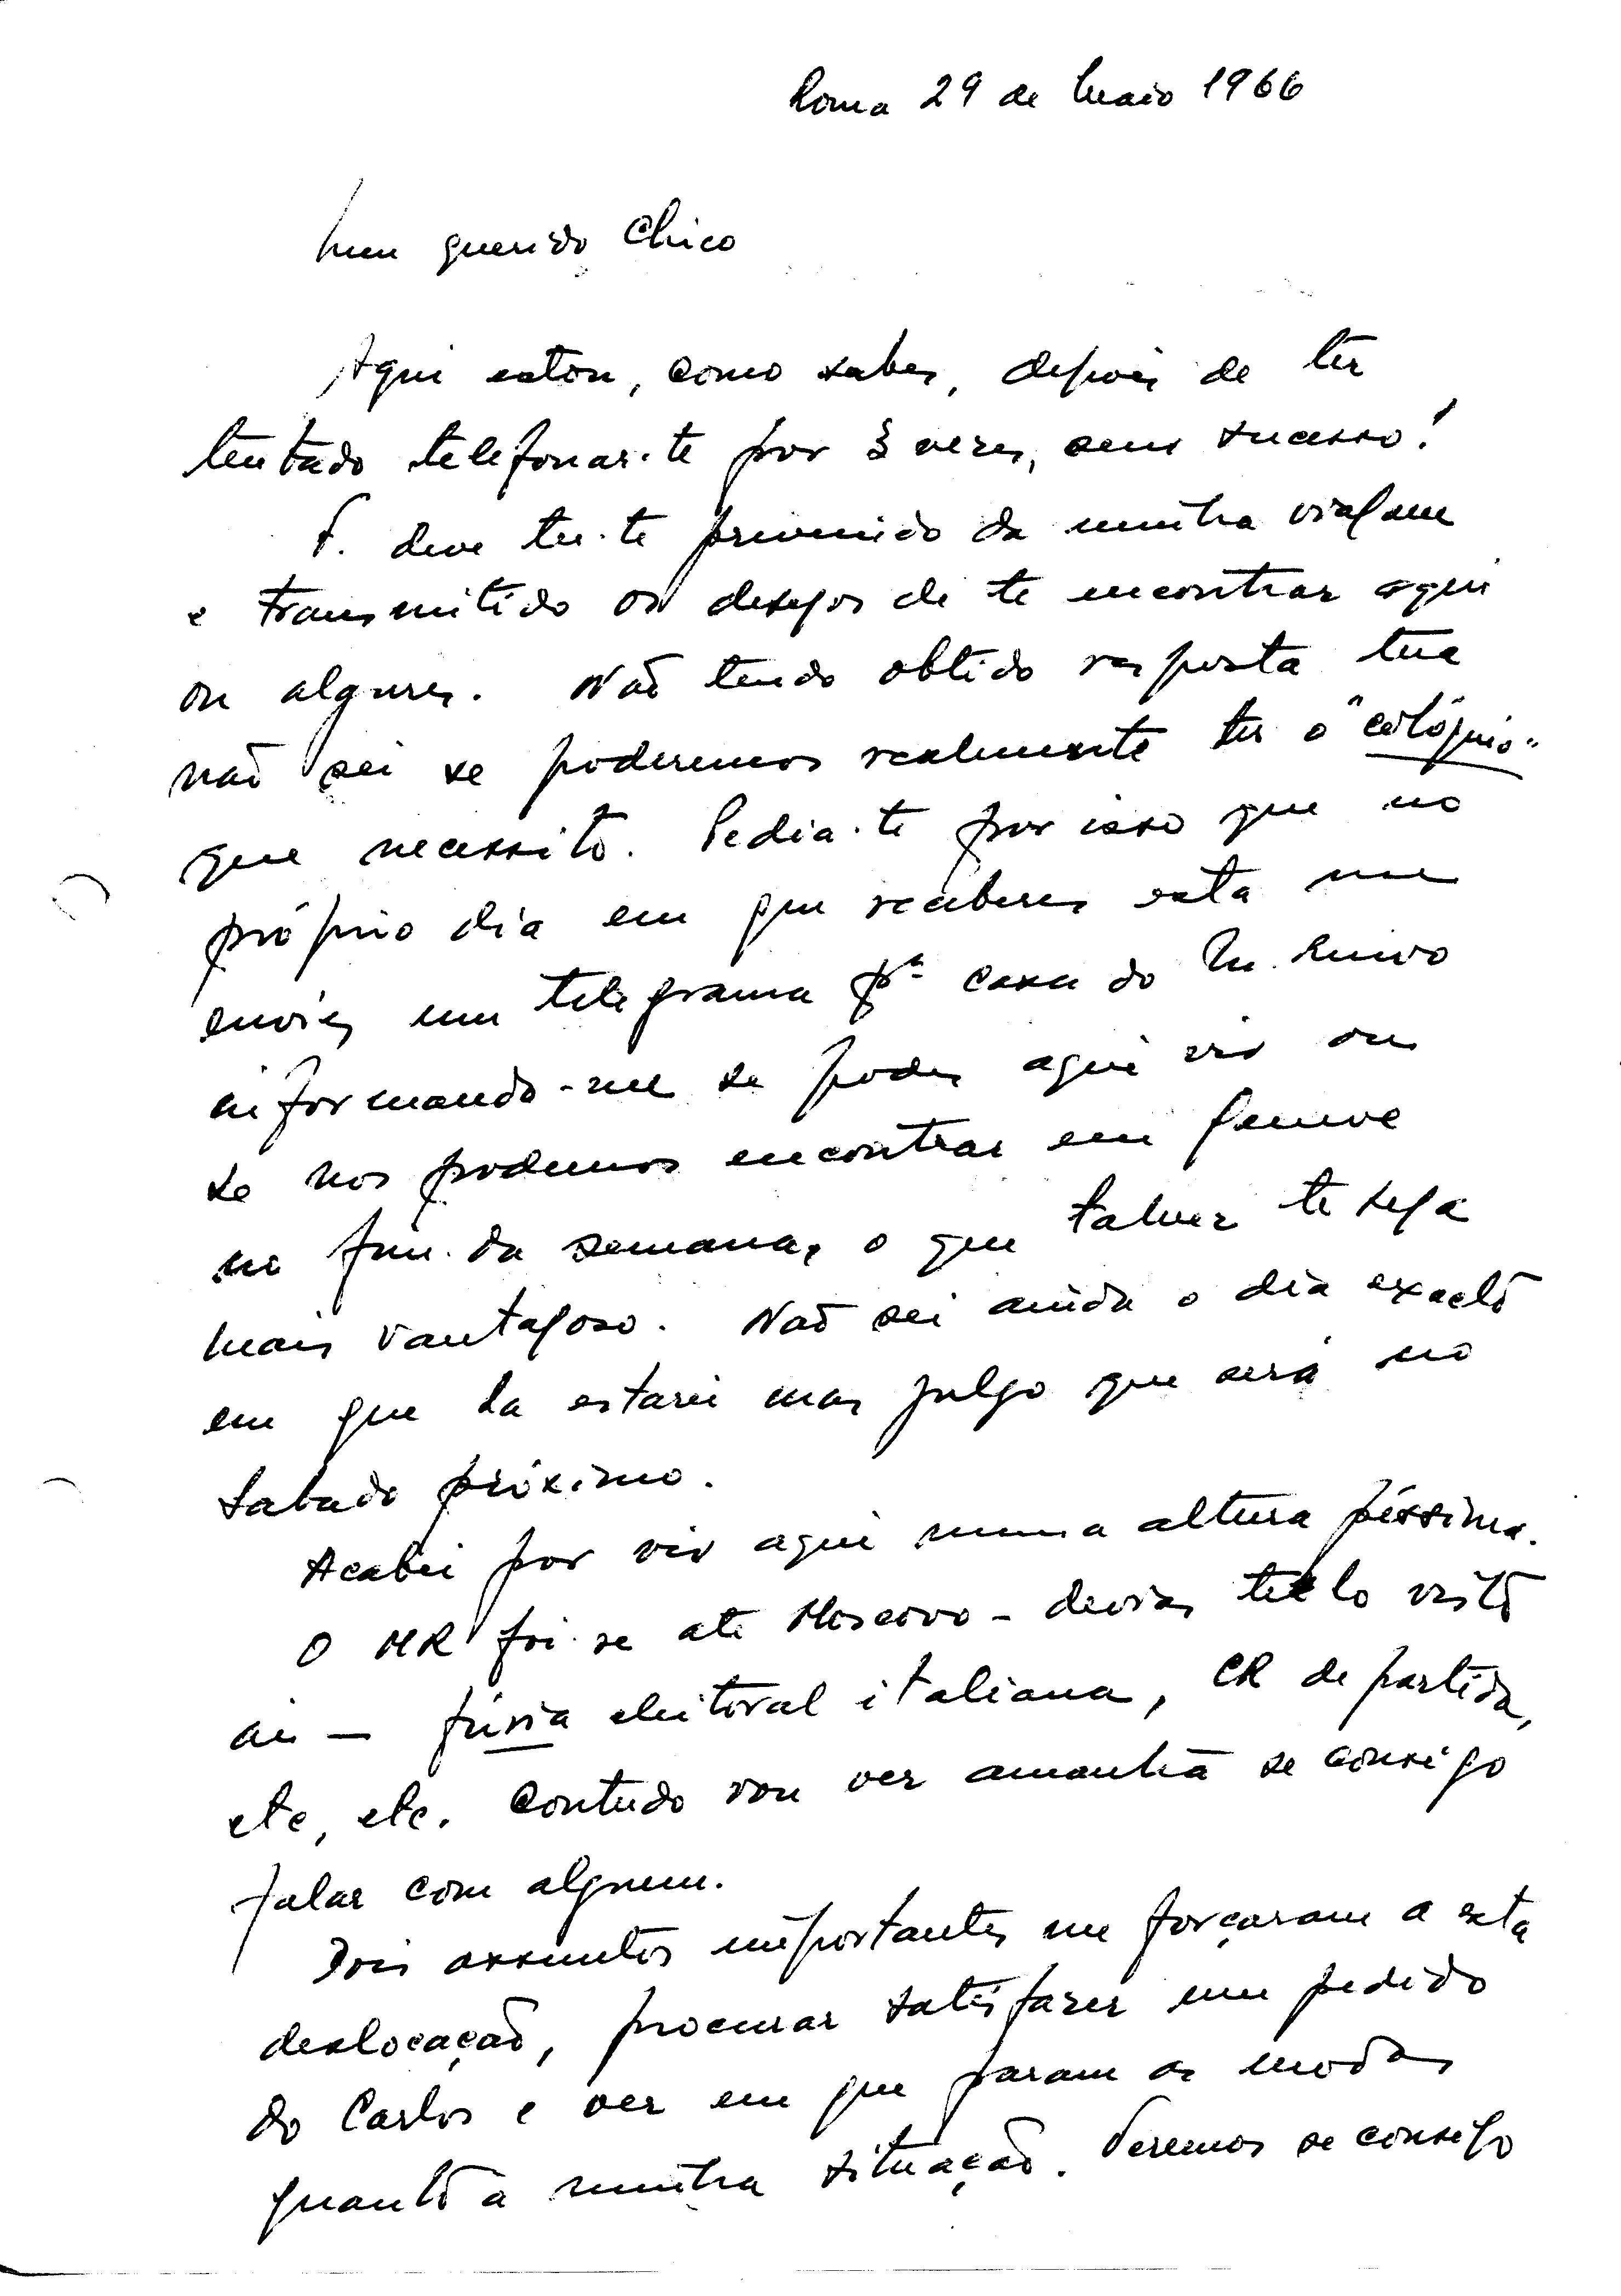 Roma 29 de Maio 1966
Meu querido Chico
Aqui estou, como sabes, depois de ter
tentado telefonar-te por 3 vezes, sem sucesso!
F. deve ter-te prevenido da minha viagem
e transmitido os desejos de te encontrar aqui
ou algures. Não tendo obtido resposta tua
não sei se poderemos realmente ter o "colóquio"
que necessito. Pedia-te por isso que no
próprio dia em que receberes esta me
envies um telegrama pª casa do M. Ruivo
informando-me se podes aqui vir ou
se nos podemos encontrar em Geneve
no fim da semana, o que talvez te seja
mais vantajoso. Não sei ainda o dia exacto
em que la estarei mas julgo que será no
Sabado próximo.
Acabei por vir aqui numa altura péssima.
O MR foi-se até Moscovo - devias tê-lo visto
aí — fúria eleitoral italiana, CR de partida,
etc, etc. Contudo vou ver amanhã se consigo
falar com alguem.
Dois assuntos importantes me forçaram a esta
deslocação, procurar satisfazer um pedido
do Carlos e ver em que param as modas
quanto a minha situação. Veremos se consigo